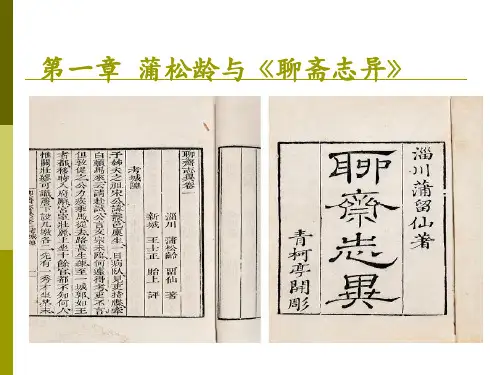 第一章 蒲松龄与《聊斋志异》
聊齋志異卷一
淄川 蒲松齡 留仙 著
新城 王士正 貽上 評
考城隍
予姊夫之祖宋公諱燾邑廩生一日病臥見吏持牒牽
白顛馬來云請赴試公言文宗未臨何遽得考吏不言
但敦促之公力疾乘馬從去路甚生疎至一城郭如王
者都移時入府廨宮室壯麗上坐十餘官都不知何人
惟關壯繆可識簷下設几墩各二先有一秀才坐其末
淄川蒲留仙著
聊齋志異
青柯亭開彫